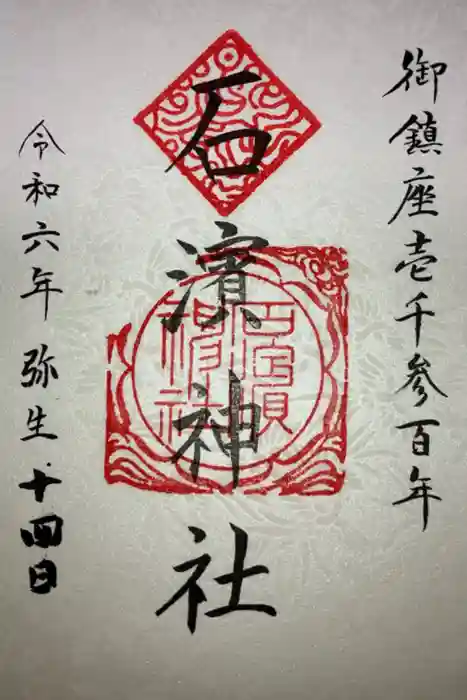 御鎮座壱千参百年
石濱神社
令和六年 弥生 十四日
石濱
神社